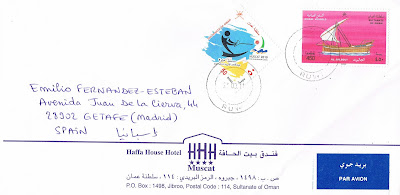 Emilio FERNANDEZ-ESTEBAN
Avenida Juan De la Cierva, 44
28902 GETAFE (Madrid)
SPAIN اسبانيا
فندق بيت الحافة
Haffa House Hotel
HHH
★★★★
Muscat
ص . ب : ١٤٩٨، جبروه، الرمز البريدي : ١١٤، سلطنة عمان
P.O. Box : 1498, Jibroo, Postal Code : 114, Sultanate of Oman
بريد جوي
PAR AVION